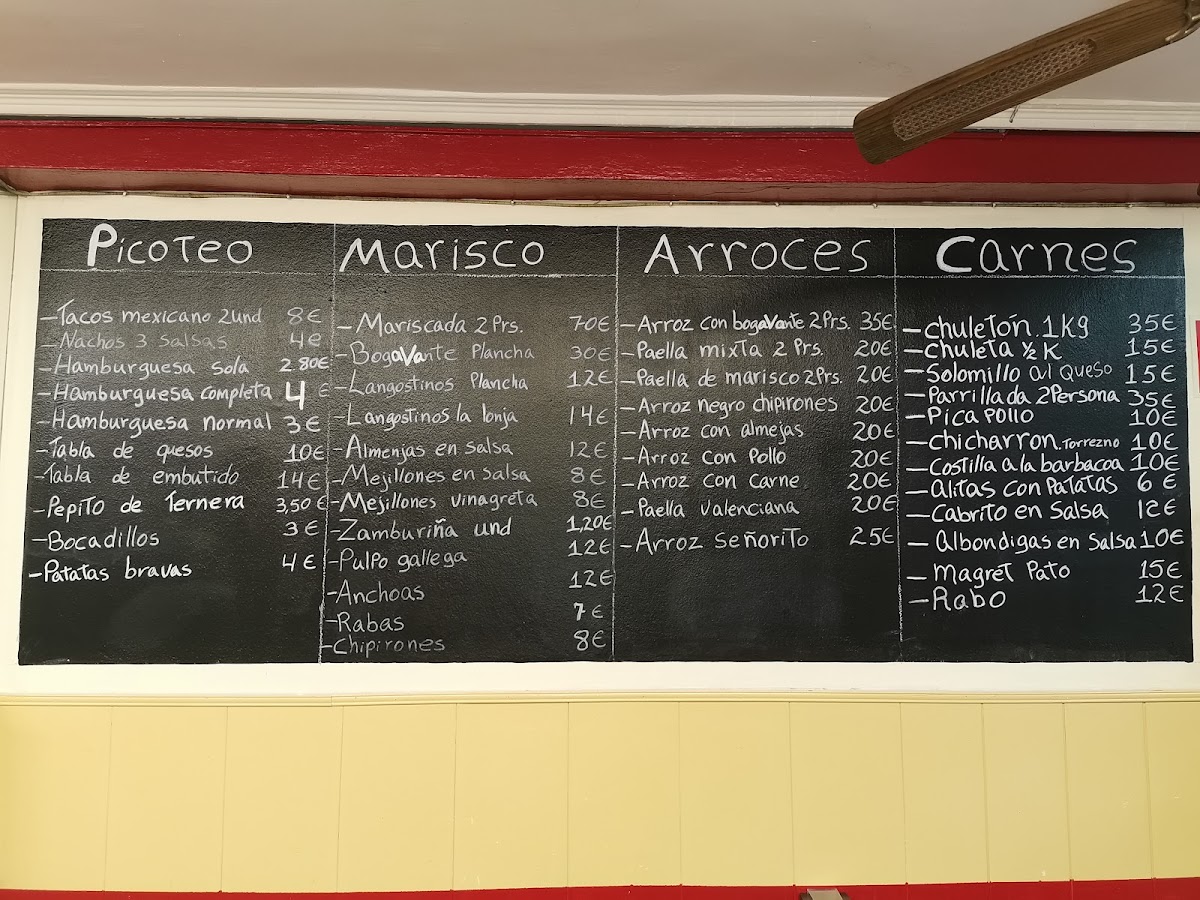 Picoteo
-Tacos mexicano 2und 8€
-Nachos 3 salsas 4€
-Hamburguesa sola 2.80€
-Hamburguesa completa 4€
-Hamburguesa normal 3€
-Tabla de quesos 10€
-Tabla de embutido 14€
-Pepito de Ternera 3,50€
-Bocadillos 3€
-Patatas bravas 4€
Marisco
-Mariscada 2 Prs. 70€
-Bogavante Plancha 30€
-Langostinos Plancha 12€
-Langostinos la lonja 14€
-Almenjas en salsa 12€
-Mejillones en salsa 8€
-Mejillones vinagreta 8€
-Zamburiña und 1,20€
-Pulpo gallega 12€
-Anchoas 12€
-Rabas 7€
-Chipirones 8€
Arroces
-Arroz con bogavante 2Prs. 35€
-Paella mixta 2 Prs. 20€
-Paella de marisco 2Prs. 20€
-Arroz negro chipirones 20€
-Arroz con almejas 20€
-Arroz con Pollo 20€
-Arroz con carne 20€
-Paella valenciana 20€
-Arroz señorito 25€
Carnes
-chuletón 1Kg 35€
-chuleta ½ K 15€
-Solomillo al queso 15€
-Parrillada 2Persona 35€
-Pica pollo 10€
-chicharron.Torrezno 10€
-Costilla a la barbacoa 10€
-alitas con Patatas 6€
-Cabrito en Salsa 12€
-albondigas en Salsa 10€
-Magret Pato 15€
-Rabo 12€